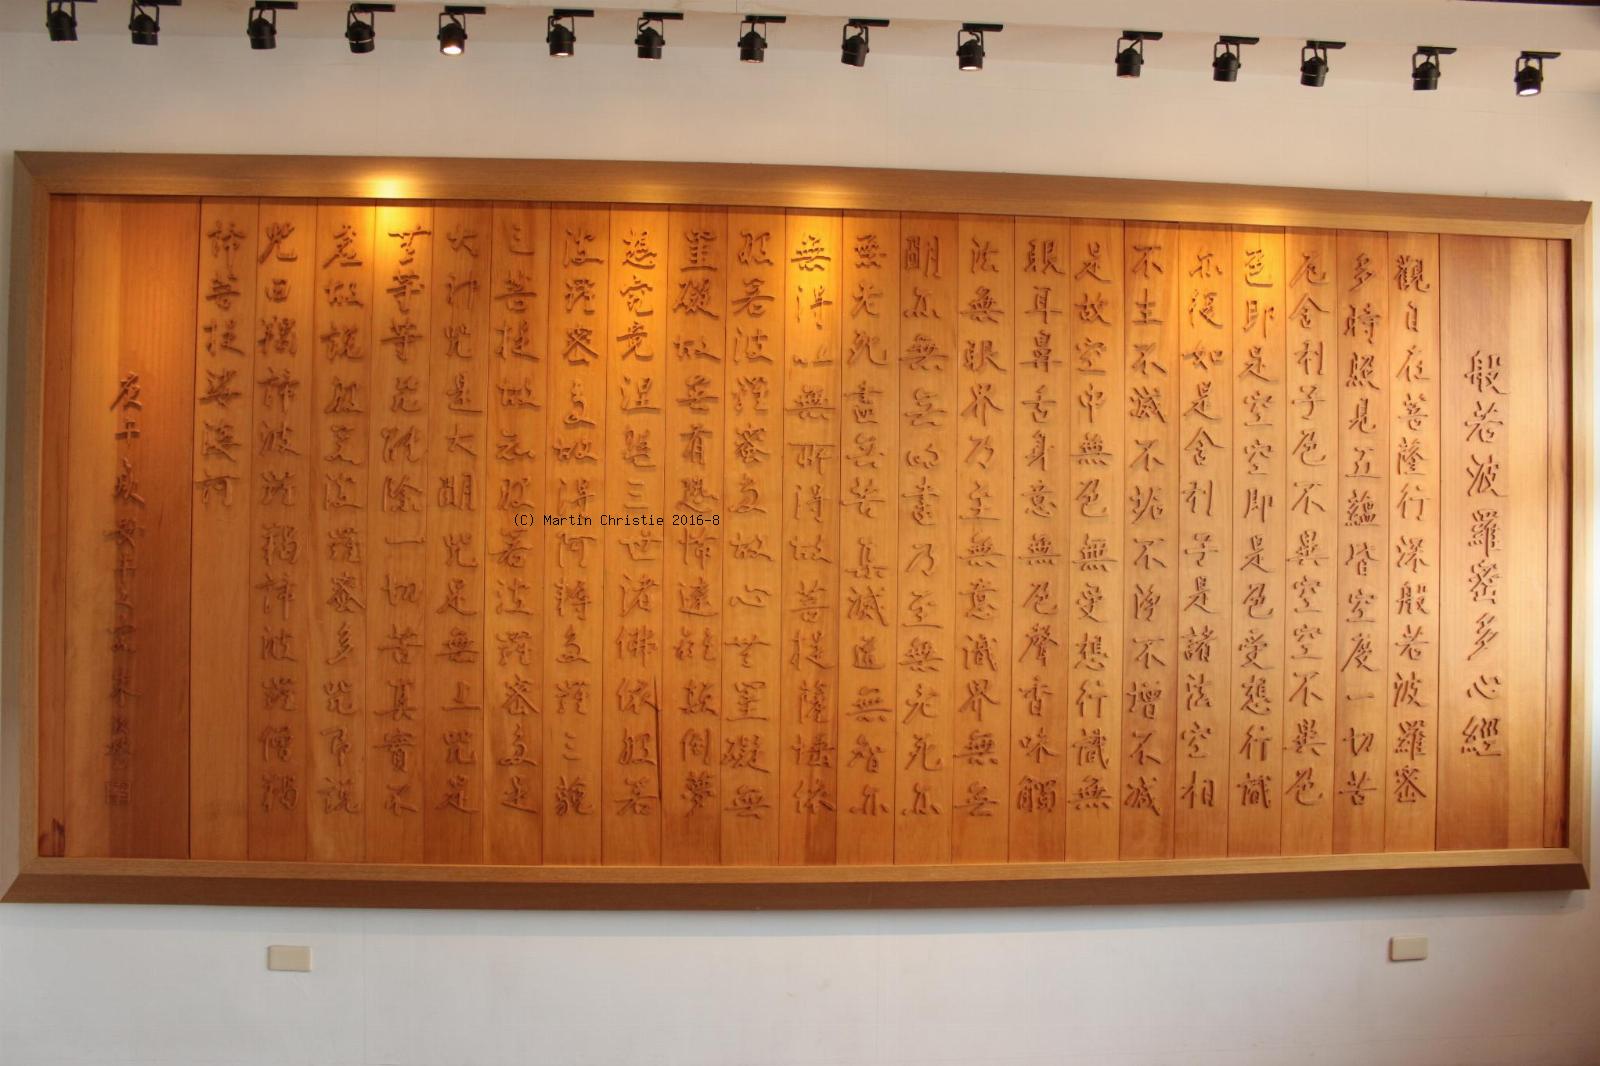 般若波羅密多心經
觀自在菩薩行深般若波羅密
多時照見五蘊皆空度一切苦
厄舍利子色不異空空不異色
色即是空空即是色受想行識
亦復如是舍利子是諸法空相
不生不滅不垢不淨不增不減
是故空中無色無受想行識無
眼耳鼻舌身意無色聲香味觸
法無眼界乃至無意識界無無
明亦無無明盡乃至無老死亦
無老死盡無苦集滅道無智亦
無得以無所得故菩提薩埵依
般若波羅蜜多故心無罣礙無
罣礙故無有恐怖遠離顛倒夢
想究竟涅槃三世諸佛依般若
波羅密多故得阿耨多羅三藐
三菩提故知般若波羅密多是
大神咒是大明咒是無上咒是
無等等咒能除一切苦真實不
虛故說般若波羅蜜多咒即說
咒曰羯諦波羅羯諦波羅僧羯
諦菩提娑婆訶
庚午歲
(C) Martin Christie 2016-8